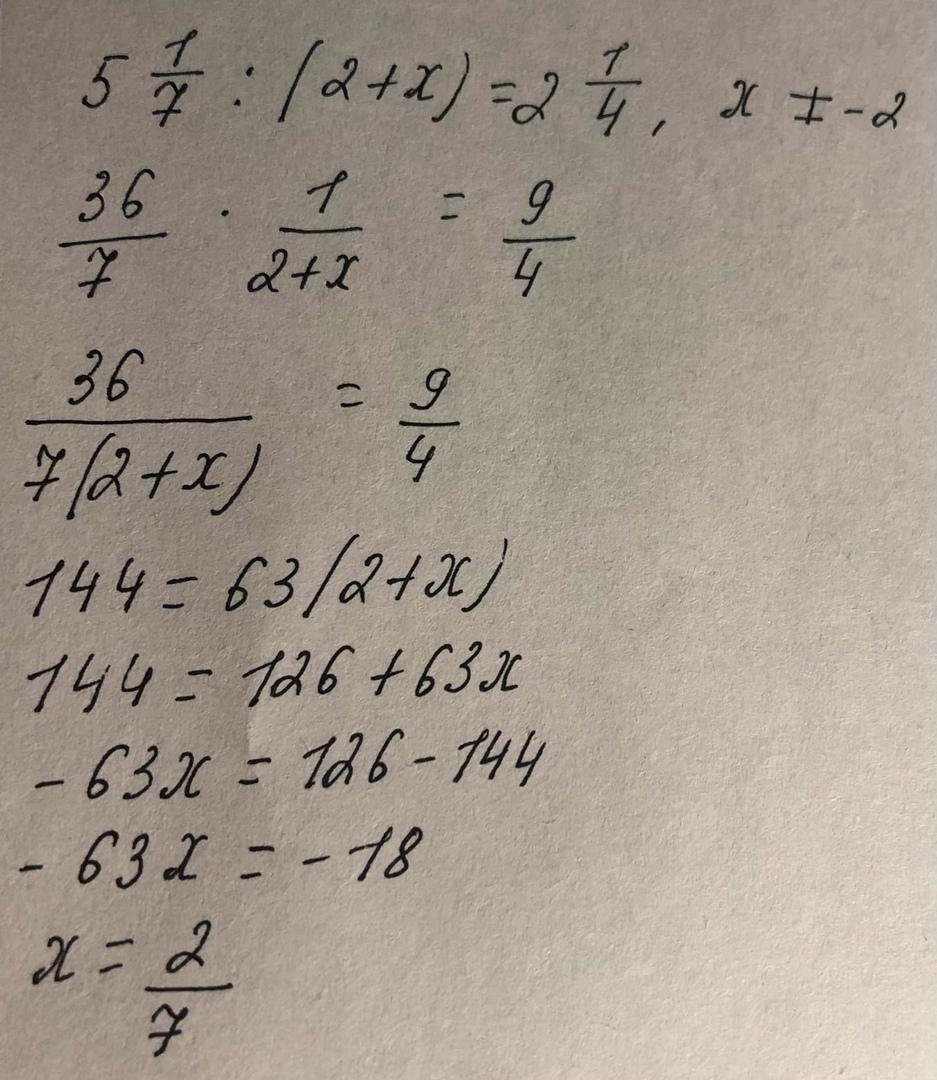 5 1/7 : (2+x) = 2 1/4, x ≠ -2
36/7 · 1/(2+x) = 9/4
36/(7(2+x)) = 9/4
144 = 63(2+x)
144 = 126 + 63x
- 63x = 126 - 144
- 63x = - 18
x = 2/7